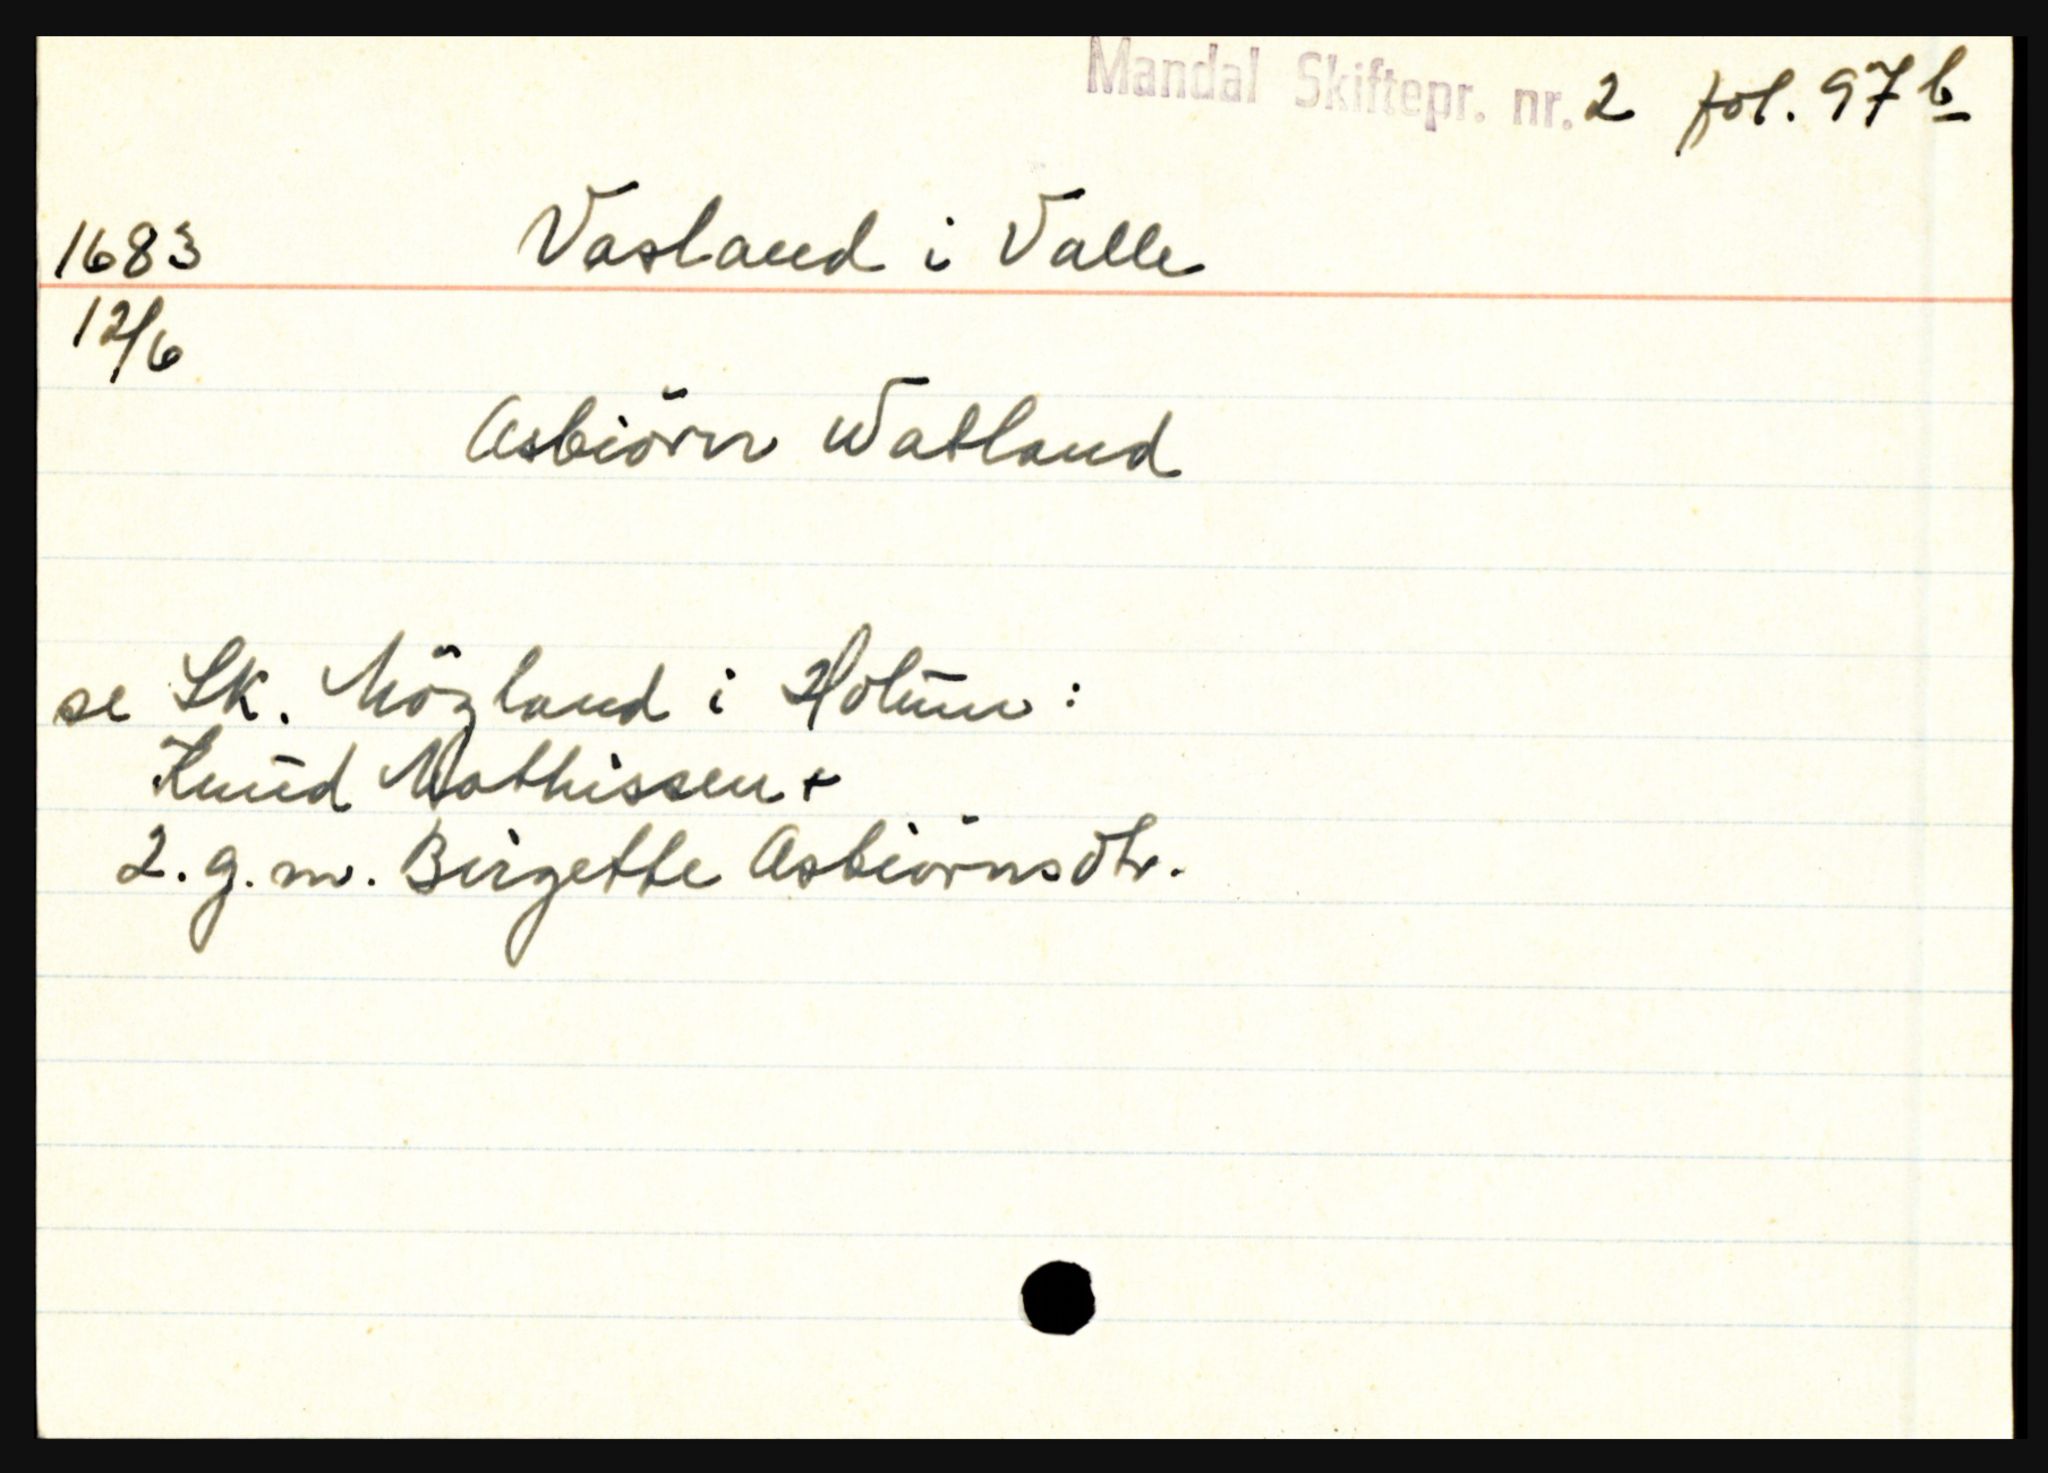 Mandal Skiftepr. nr. 2 fol. 97 b
1683 Vasland i Valle
12/6
Asbiörn Watland
se Sk. Mögland i Holum:
Knud Mathissen +
2. g. m. Birgette Asbiörnsdtr.